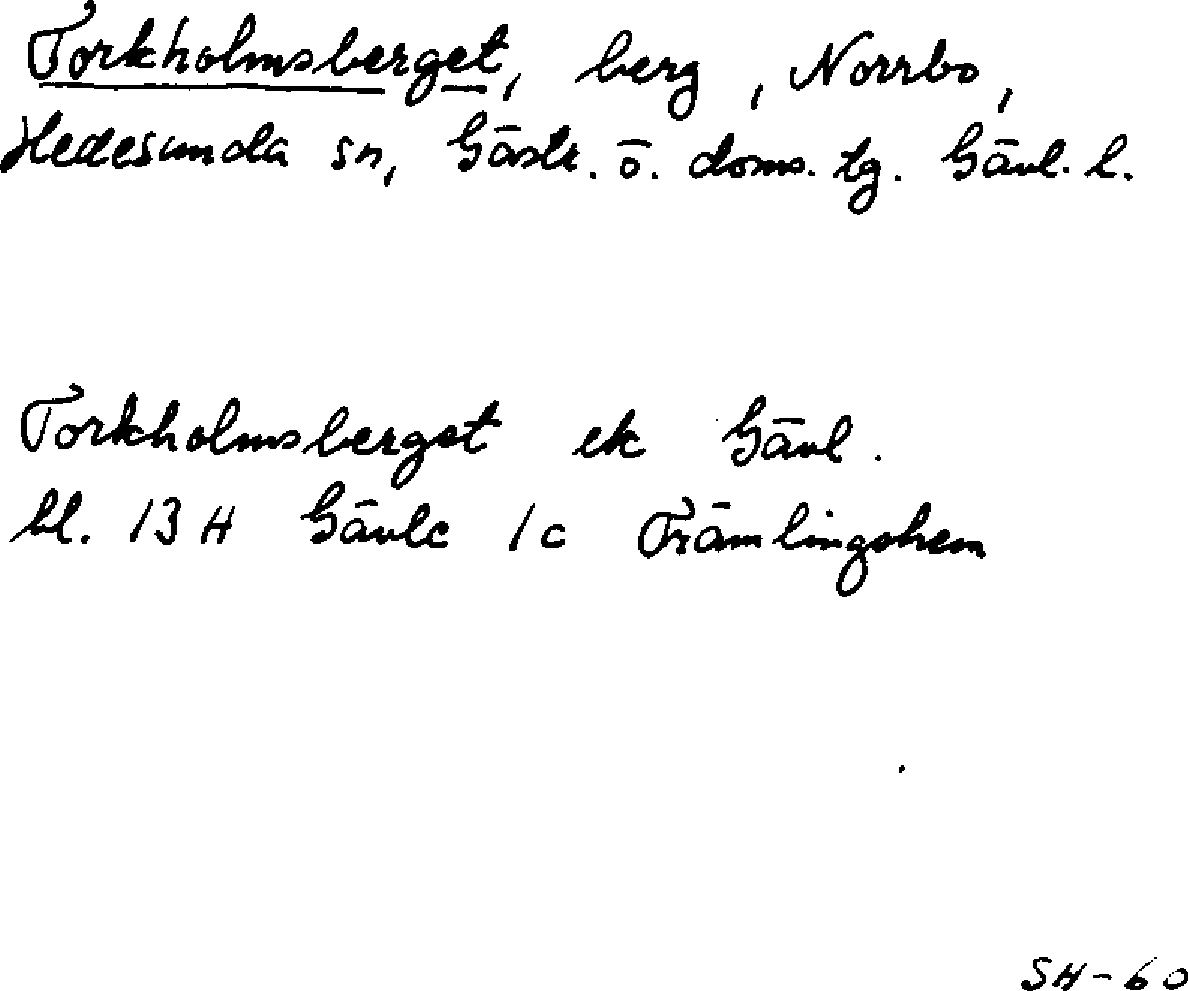 Torkholmsberget, berg, Norrbo,
Hedesunda sn, Gästr. ö. doms. tg. Gävl. l.
Torkholmsberget ek Gävl.
bl. 13 H Gävle 1c Trämlingshem
SH-60